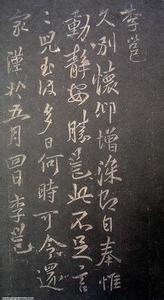 李邕
久別懷仰增深即日奉惟
動靜安勝邕此不足言
兒多日何時可令還
家謹五月四日李邕